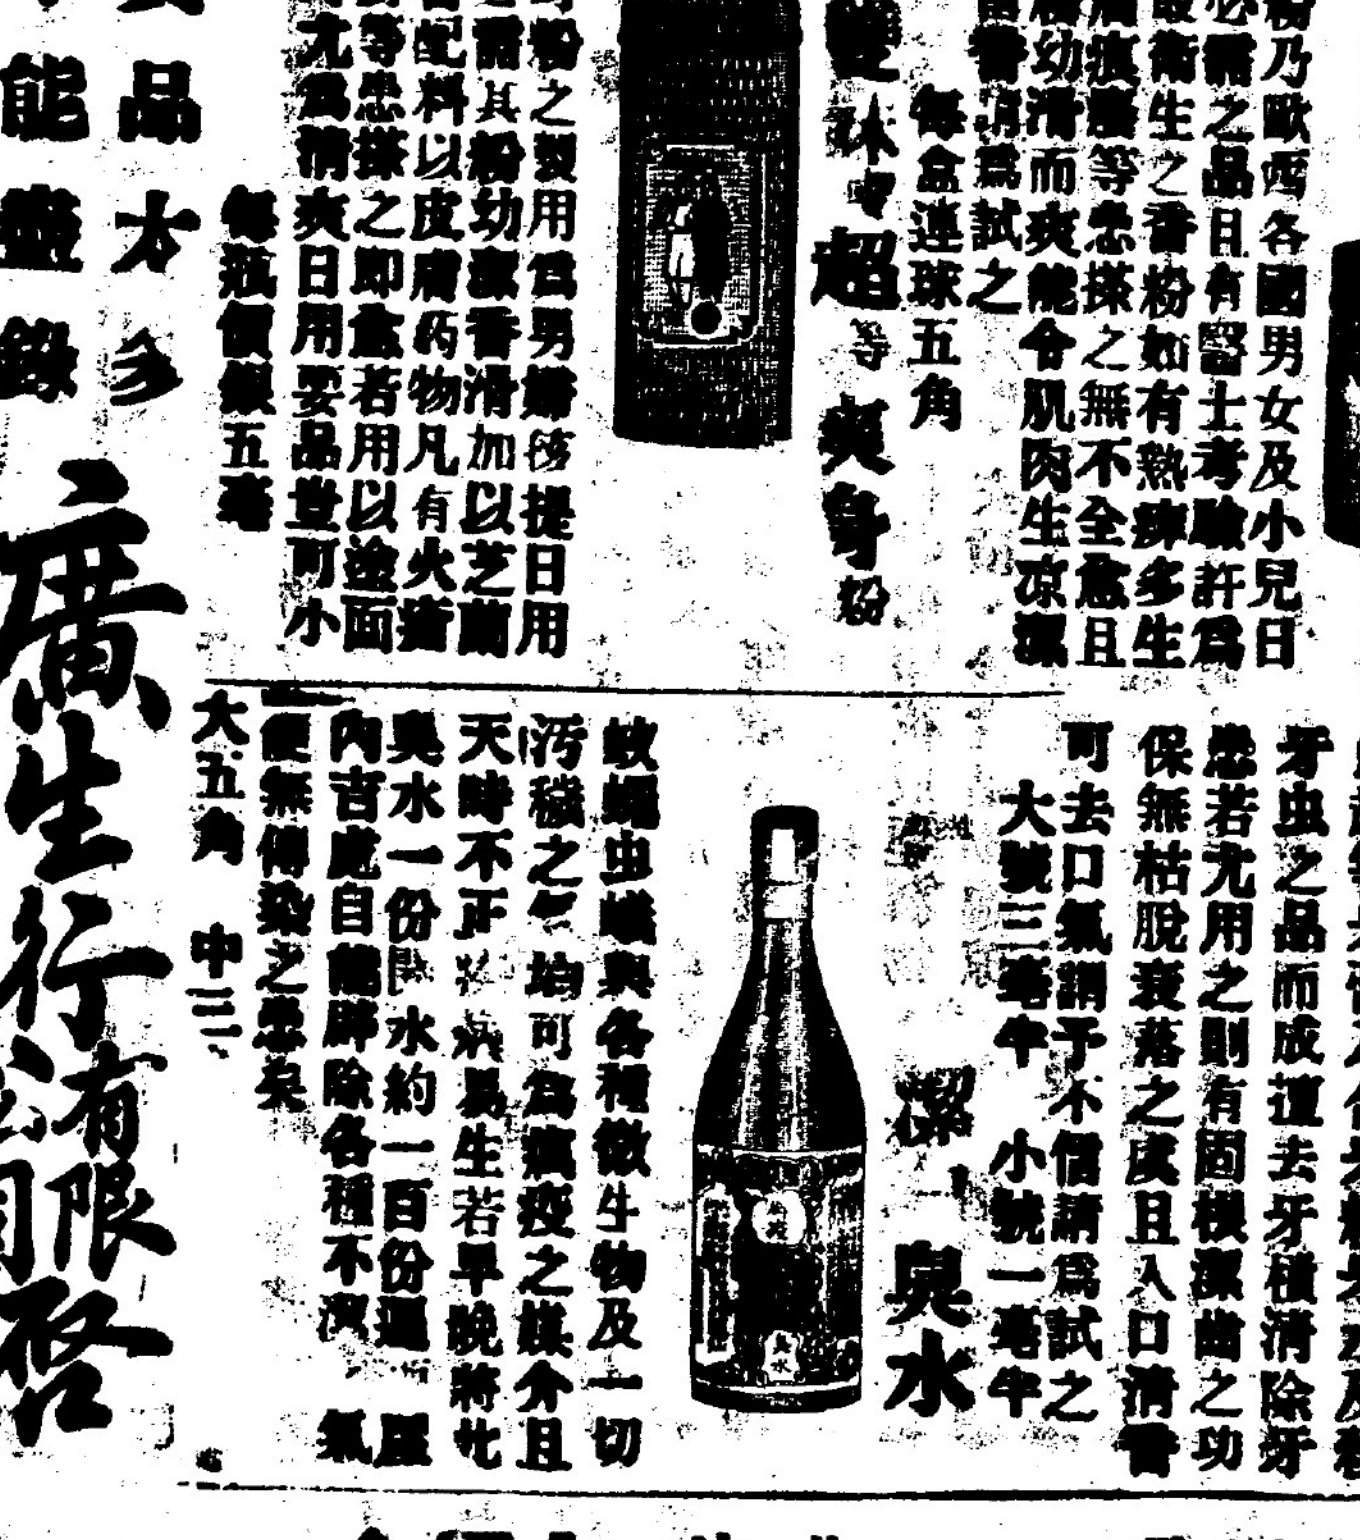 粉乃歐西各國男女及小兒日
必需之品且有醫士考驗許為
最衛生之香粉如有熱痱多生
瘡痕癦等患搽之無不全愈且
幼滑而爽能令肌肉生凉潔
請為試之
每盒連球五角
超等爽身粉
粉之製用為男婦孩提日用
需其粉幼潔香滑加以芝蘭
配料以皮膚葯物凡有火瘡
等患搽之即愈若用以塗面
尤為清爽日用要品豈可小
每瓶價銀五毫
牙虫之品而成擅去牙積清除牙
患若尤用之則有固根潔齒之功
保無枯脫衰落之虞且入口清香
可去口氣謂予不信請為試之
大號三毫半 小號一毫半
潔 臭水
臭水
蚊蠅虫蟻與各種微生物及一切
污穢之 均可為瘟疫之媒介且
天時不正 病易生若早晚將此
臭水一份開水約一百份洒 屋
內吉處自能辟除各種不潔 氣
便無傳染之患矣
大五角 中三
品太多
能盡錄
廣生行有限公司啓